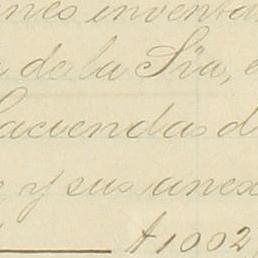 ones inventa
de la Sra, e
Haciendas d
e y sus anex
$1002